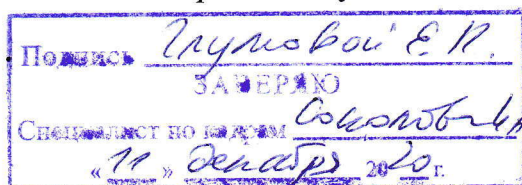 Подпись Глумовой Е.П.
ЗАВЕРЯЮ
Специалист по кадрам
«11» декабря 2020 г.